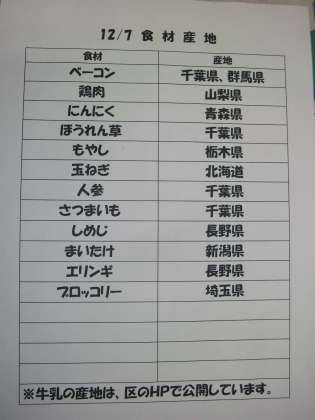 12/7 食材産地
食材 産地
ベーコン 千葉県、群馬県
鶏肉 山梨県
にんにく 青森県
ほうれん草 千葉県
もやし 栃木県
玉ねぎ 北海道
人参 千葉県
さつまいも 千葉県
しめじ 長野県
まいたけ 新潟県
エリンギ 長野県
ブロッコリー 埼玉県
※牛乳の産地は、区のHPで公開しています。